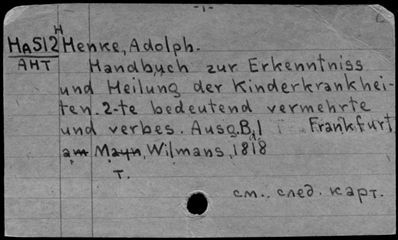 -1-
Ha512 H Henke, Adolph.
АНТ Handbuch zur Erkenntniss
und Heilung der Kinderkrankhei-
ten. 2-te bedeutend vermehrte
und verbes. Ausg. Bd 1 Frankfurt
am Mayn, Wilmans, 1818
т.
см. след. карт.